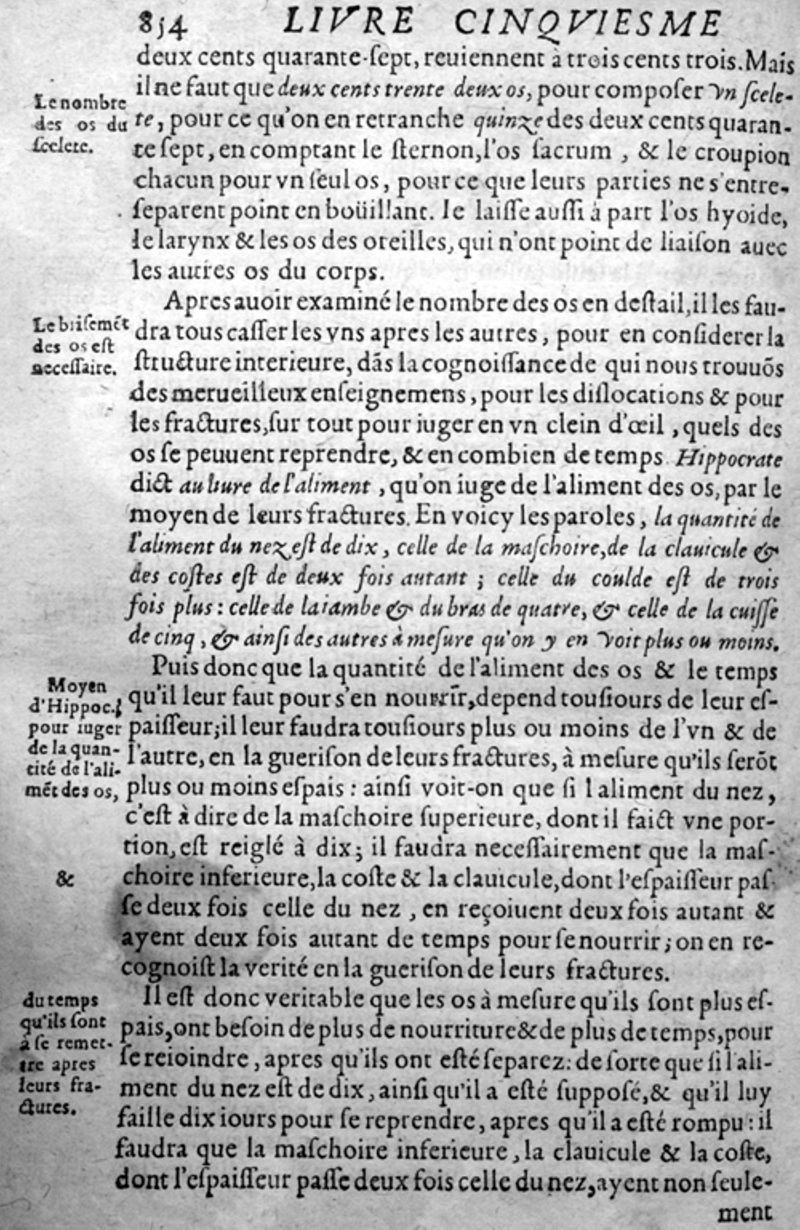 854 LIVRE CINQVIESME
deux cents quarante-ſept, reuiennent à trois cents trois. Mais
il ne faut que deux cents trente deux os, pour compoſer vn ſcele-
Le nombre
des os du
ſcelete.
te, pour ce qu'on en retranche quinze des deux cents quaran-
te ſept, en comptant le ſternon, l'os ſacrum, & le croupion
chacun pour vn ſeul os, pour ce que leurs parties ne s'entre-
ſeparent point en boüillant. Ie laiſſe auſſi à part l'os hyoide,
le larynx & les os des oreilles, qui n'ont point de liaiſon auec
les autres os du corps.
Apres auoir examiné le nombre des os en deſtail, il les fau-
Le briſemẽt
des os eſt
neceſſaire.
dra tous caſſer les vns apres les autres, pour en conſiderer la
ſtructure interieure, dãs la cognoiſſance de qui nous trouuõs
des merueilleux enſeignemens, pour les diſlocations & pour
les fractures, ſur tout pour iuger en vn clein d'œil, quels des
os ſe peuuent reprendre, & en combien de temps. Hippocrate
dict au liure de l'aliment, qu'on iuge de l'aliment des os, par le
moyen de leurs fractures. En voicy les paroles, la quantité de
l'aliment du nez eſt de dix, celle de la maſchoire, de la clauicule &
des coſtes eſt de deux fois autant ; celle du coulde eſt de trois
fois plus : celle de la iambe & du bras de quatre, & celle de la cuiſſe
de cinq, & ainſi des autres à meſure qu'on y en voit plus ou moins.
Puis donc que la quantité de l'aliment des os & le temps
Moyen
d'Hippoc.
pour iuger
de la quan-
tité de l'ali-
mẽt des os,
qu'il leur faut pour s'en nourrir, depend touſiours de leur eſ-
paiſſeur; il leur faudra touſiours plus ou moins de l'vn & de
l'autre, en la gueriſon de leurs fractures, à meſure qu'ils ſerõt
plus ou moins eſpais : ainſi voit-on que ſi l aliment du nez,
c'eſt à dire de la maſchoire ſuperieure, dont il faict vne por-
tion, eſt reiglé à dix; il faudra neceſſairement que la maſ-
&
choire inferieure, la coſte & la clauicule, dont l'eſpaiſſeur paſ-
ſe deux fois celle du nez, en reçoiuent deux fois autant &
ayent deux fois autant de temps pour ſe nourrir; on en re-
cognoiſt la verité en la gueriſon de leurs fractures.
Il eſt donc veritable que les os à meſure qu'ils ſont plus eſ-
du temps
qu'ils ſont
à ſe remet-
tre apres
leurs fra-
ctures.
pais, ont beſoin de plus de nourriture & de plus de temps, pour
ſe reioindre, apres qu'ils ont eſté ſeparez: de ſorte que ſi l'ali-
ment du nez eſt de dix, ainſi qu'il a eſté ſuppoſé, & qu'il luy
faille dix iours pour ſe reprendre, apres qu'il a eſté rompu : il
faudra que la maſchoire inferieure, la clauicule & la coſte,
dont l'eſpaiſſeur paſſe deux fois celle du nez, ayent non ſeule-
ment